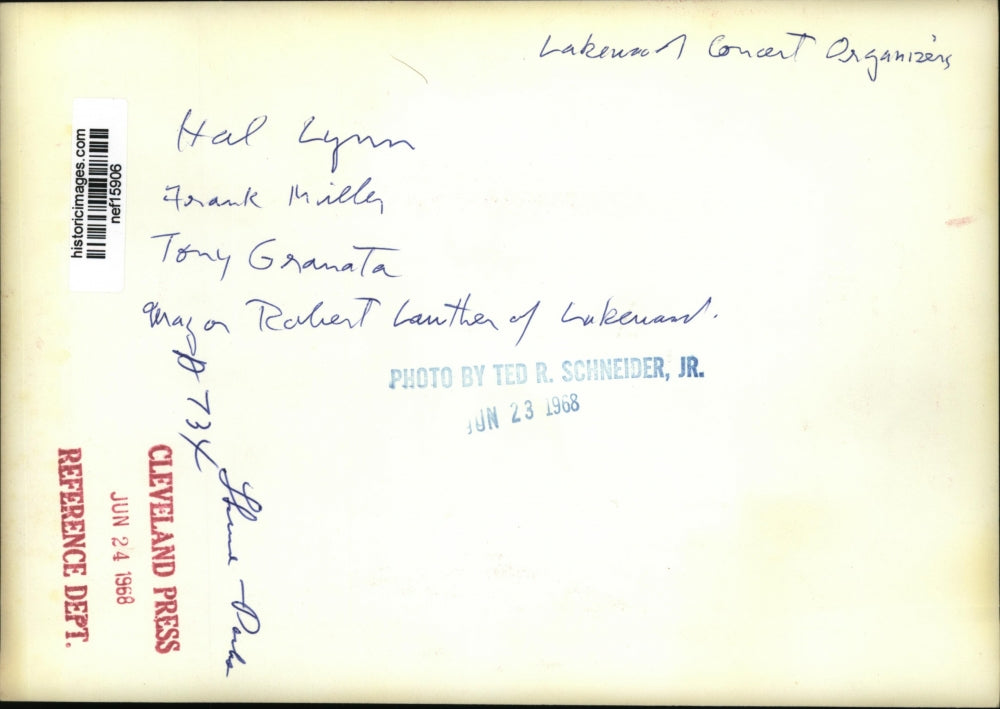 Lakewood Concert Organizers
historicimages.com
nef15906
Hal Lynn
Frank Miller
Tony Granata
Mayor Robert Lawther of Lakewood.
PHOTO BY TED R. SCHNEIDER, JR.
JUN 23 1968
CLEVELAND PRESS
JUN 24 1968
REFERENCE DEPT.